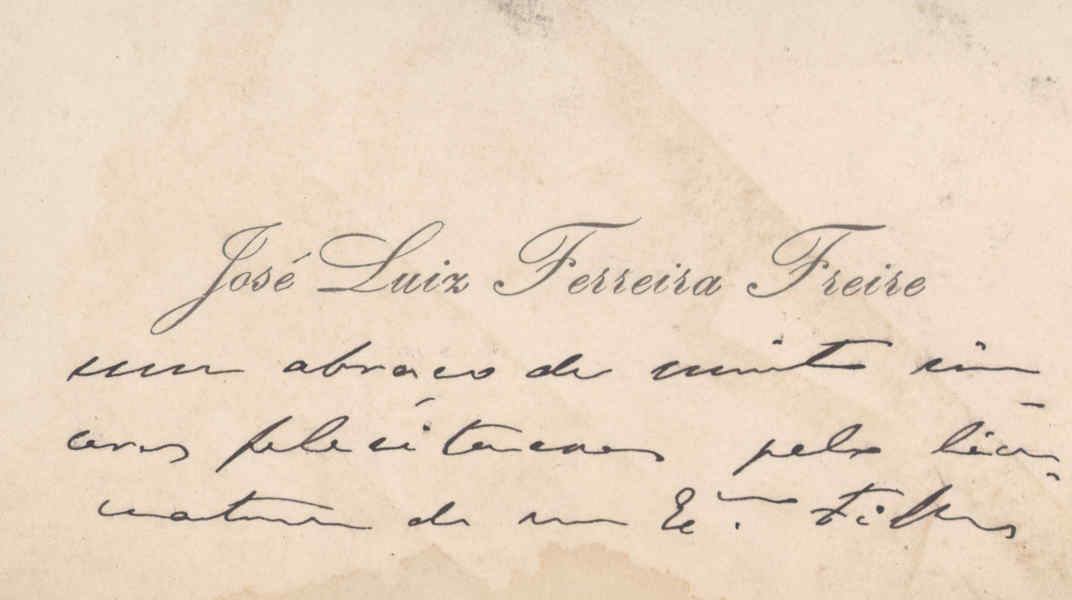 José Luiz Ferreira Freire
um abraço de muito sin
ceras felicitações pelo
de seu Exmo. Filho